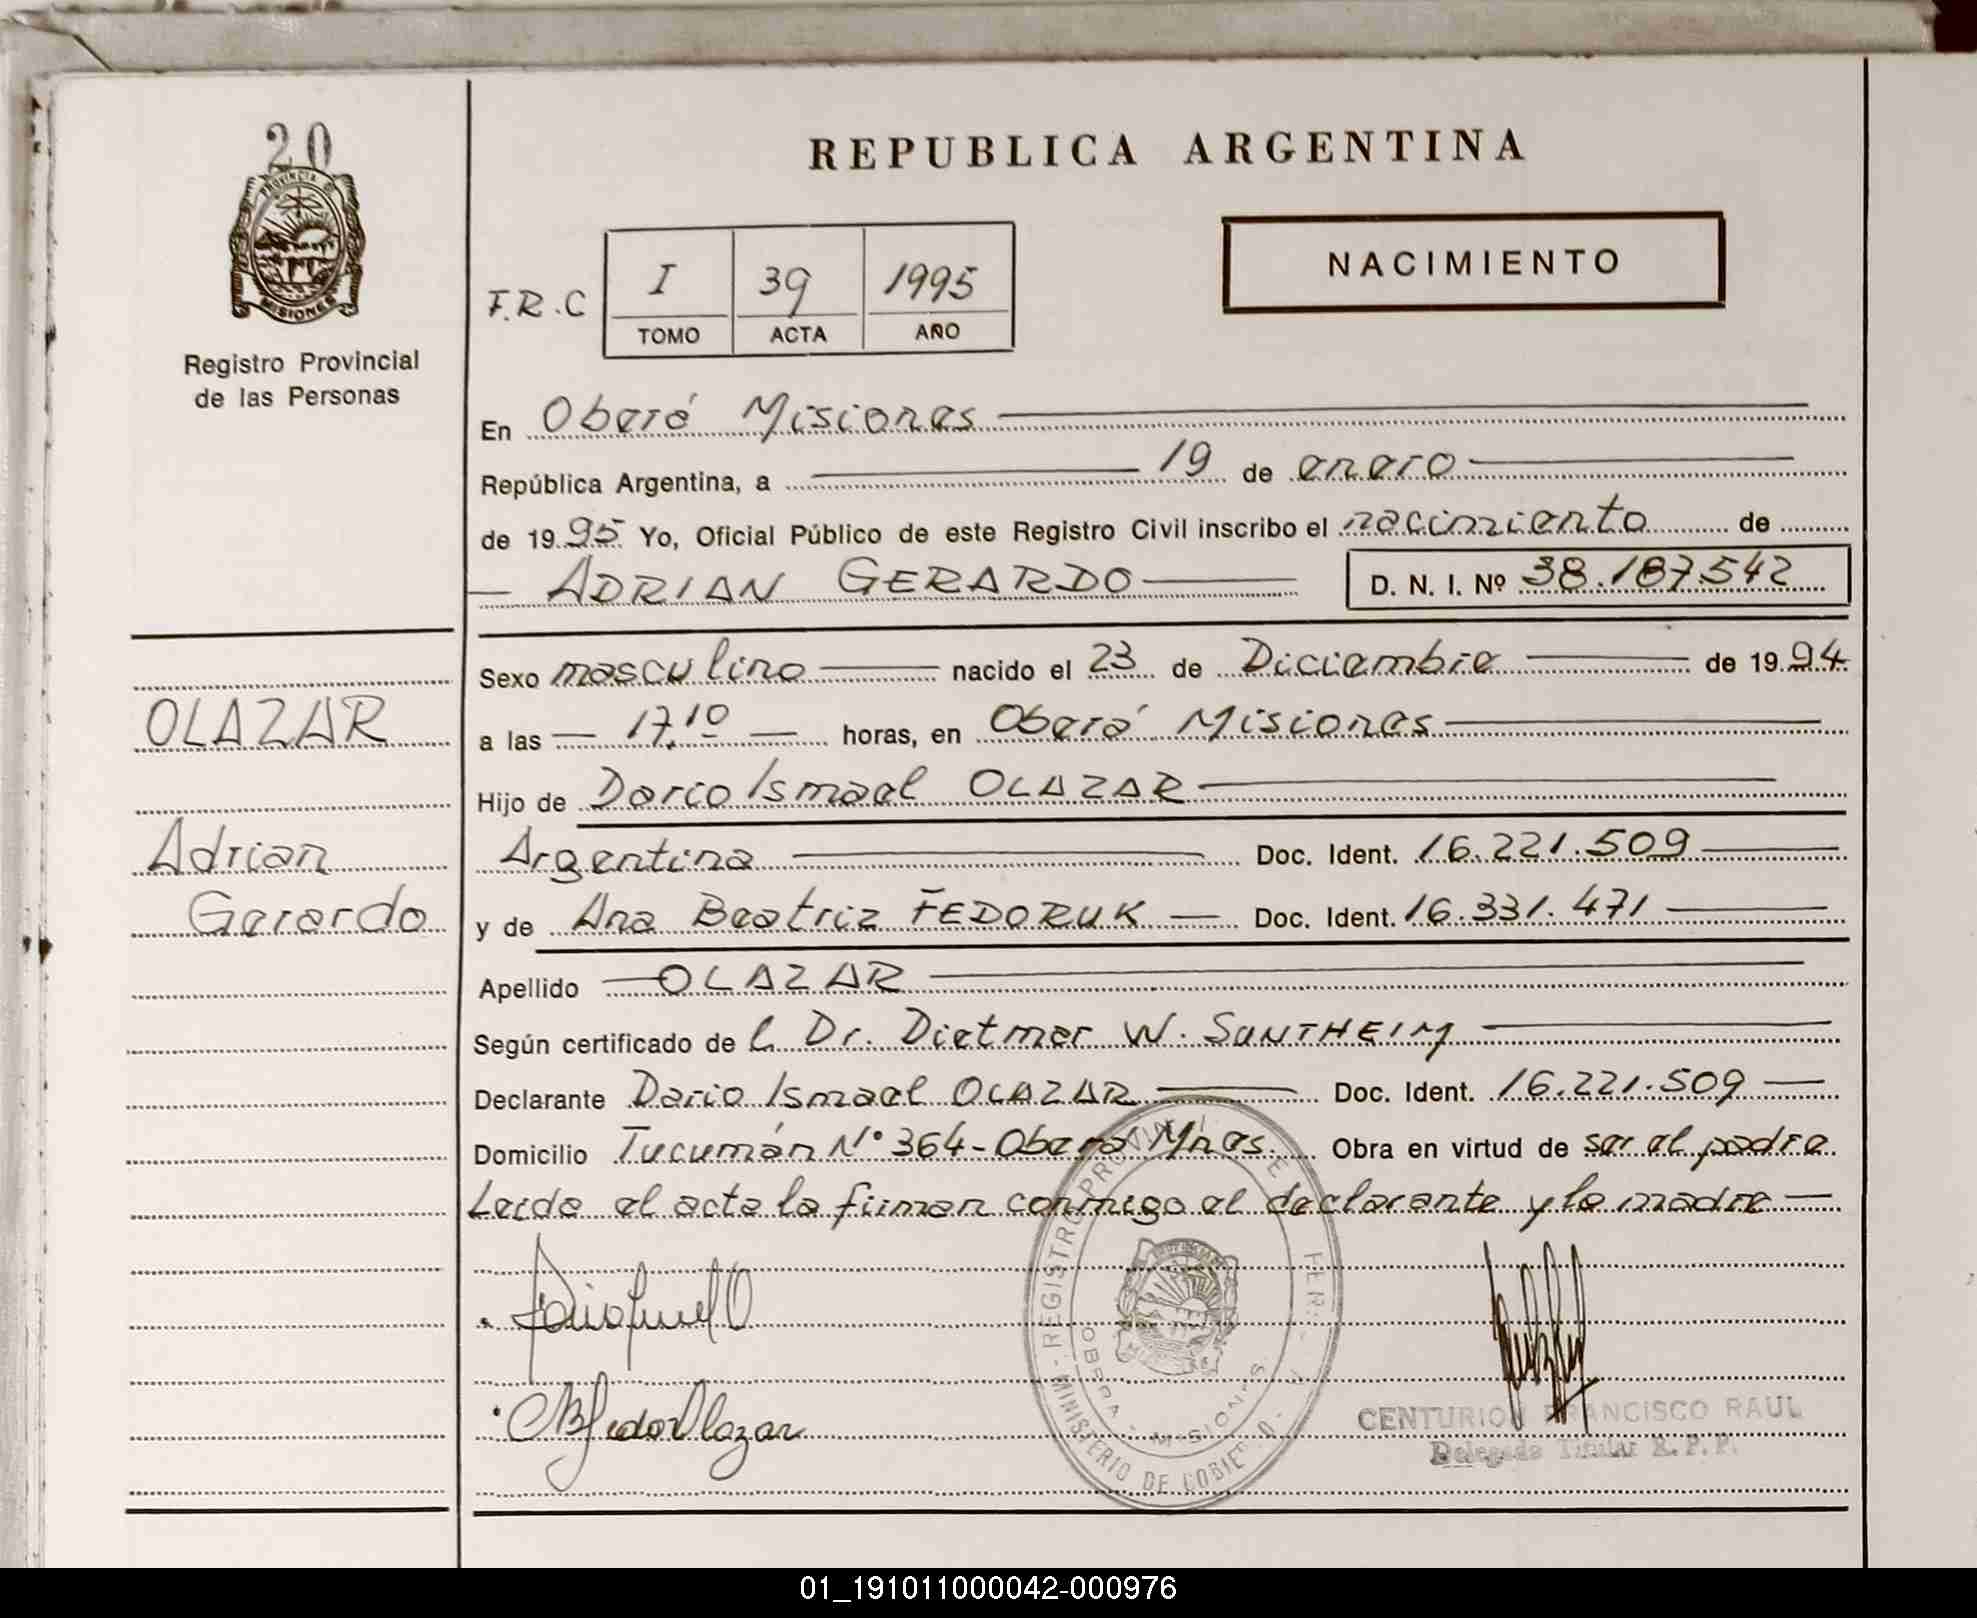 20
PROVINCIA DE
MISIONES
Registro Provincial
de las Personas
REPUBLICA ARGENTINA
F.R.C
I 39 1995
TOMO ACTA AÑO
NACIMIENTO
En Oberá Misiones
República Argentina, a 19 de enero
de 1995 Yo, Oficial Público de este Registro Civil inscribo el nacimiento de
ADRIAN GERARDO D. N. I. Nº 38.187.542
Sexo masculino nacido el 23 de Diciembre de 1994
a las 17.10 horas, en Oberá Misiones
Hijo de Darío Ismael OLAZAR
Argentina Doc. Ident. 16.221.509
y de Ana Beatriz FEDORUK Doc. Ident. 16.331.471
Apellido OLAZAR
Según certificado del Dr. Dietmar W. SUNTHEIM
Declarante Dario Ismael OLAZAR Doc. Ident. 16.221.509
Domicilio Tucumán N° 364-Oberá Mnes. Obra en virtud de ser el padre
Leida el acta la firman conmigo el declarante y la madre
OLAZAR
Adrian
Gerardo
REGISTRO PROVINCIAL DE
MINISTERIO DE GOBIERNO
OBERA - MISIONES
CENTURION FRANCISCO RAUL
Delegado Titular R. P. P.
01_191011000042-000976